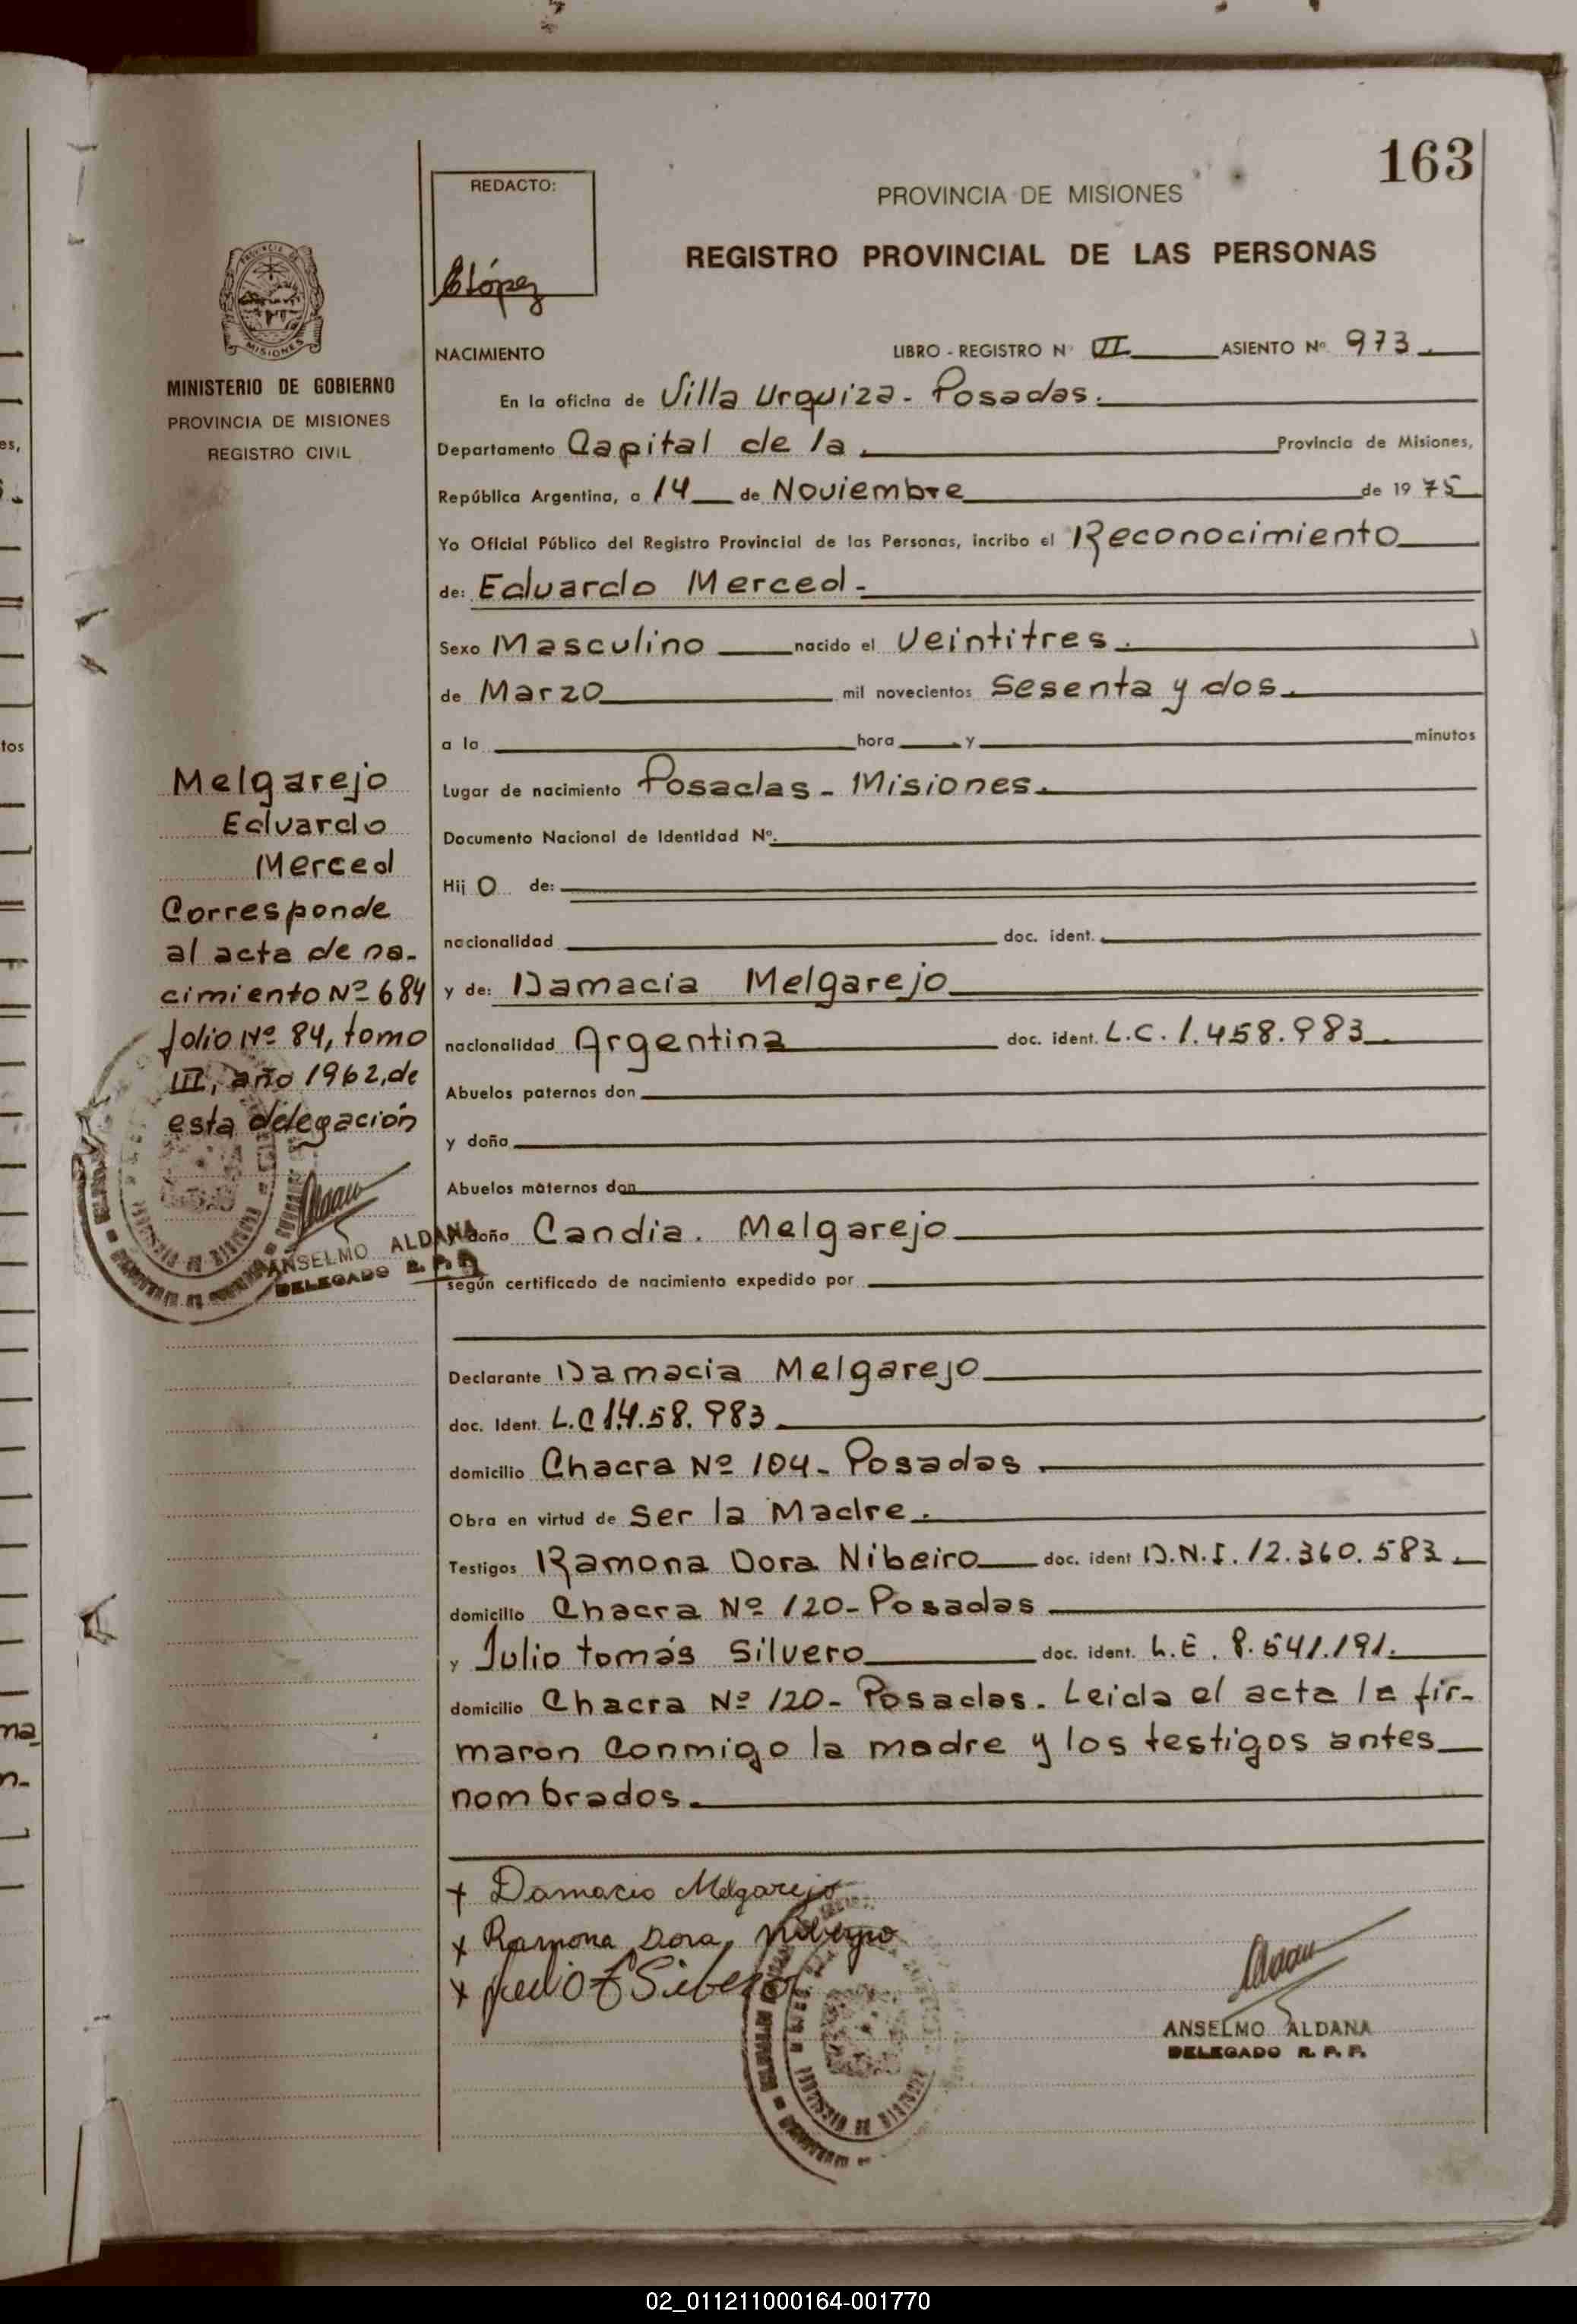 163
REDACTO:
PROVINCIA DE MISIONES
REGISTRO PROVINCIAL DE LAS PERSONAS
López
MINISTERIO DE GOBIERNO
PROVINCIA DE MISIONES
REGISTRO CIVIL
NACIMIENTO LIBRO - REGISTRO Nº VI ASIENTO Nº 973.
En la oficina de Villa Urquiza - Posadas.
Departamento Capital de la Provincia de Misiones,
República Argentina, a 14 de Noviembre de 1975
Yo Oficial Público del Registro Provincial de las Personas, incribo el Reconocimiento
de: Eduardo Merced-
Sexo Masculino nacido el Veintitres.
de Marzo mil novecientos Sesenta y dos.
a la hora y minutos
Lugar de nacimiento Posadas - Misiones.
Documento Nacional de Identidad Nº.
Hij O de:
nacionalidad doc. ident.
y de: Damacia Melgarejo
nacionalidad Argentina doc. ident. L.C. 1.458.983
Abuelos paternos don
y doña
Abuelos maternos don
y doña Candia. Melgarejo
según certificado de nacimiento expedido por
Melgarejo
Eduardo
Merced
Corresponde
al acta de na-
cimiento Nº 684
folio Nº 84, tomo
III, año 1962, de
esta delegación
ANSELMO ALDANA
DELEGADO R. P. P.
Declarante Damacia Melgarejo
doc. Ident. L.C 1.4.58.983
domicilio Chacra Nº 104 - Posadas
Obra en virtud de ser la Madre.
Testigos Ramona Dora Nibeiro doc. ident D.N.I. 12.360.583
domicilio Chacra Nº 120 - Posadas
y Julio tomás Silvero doc. ident. L.E. 8.541.191.
domicilio Chacra Nº 120 - Posadas. Leida el acta la fir-
maron Conmigo la madre y los testigos antes
nombrados.
+ Damacia Melgarejo
x Ramona Dora Nibeiro
x Julio T Silvero
ANSELMO ALDANA
DELEGADO R. P. P.
02_011211000164-001770